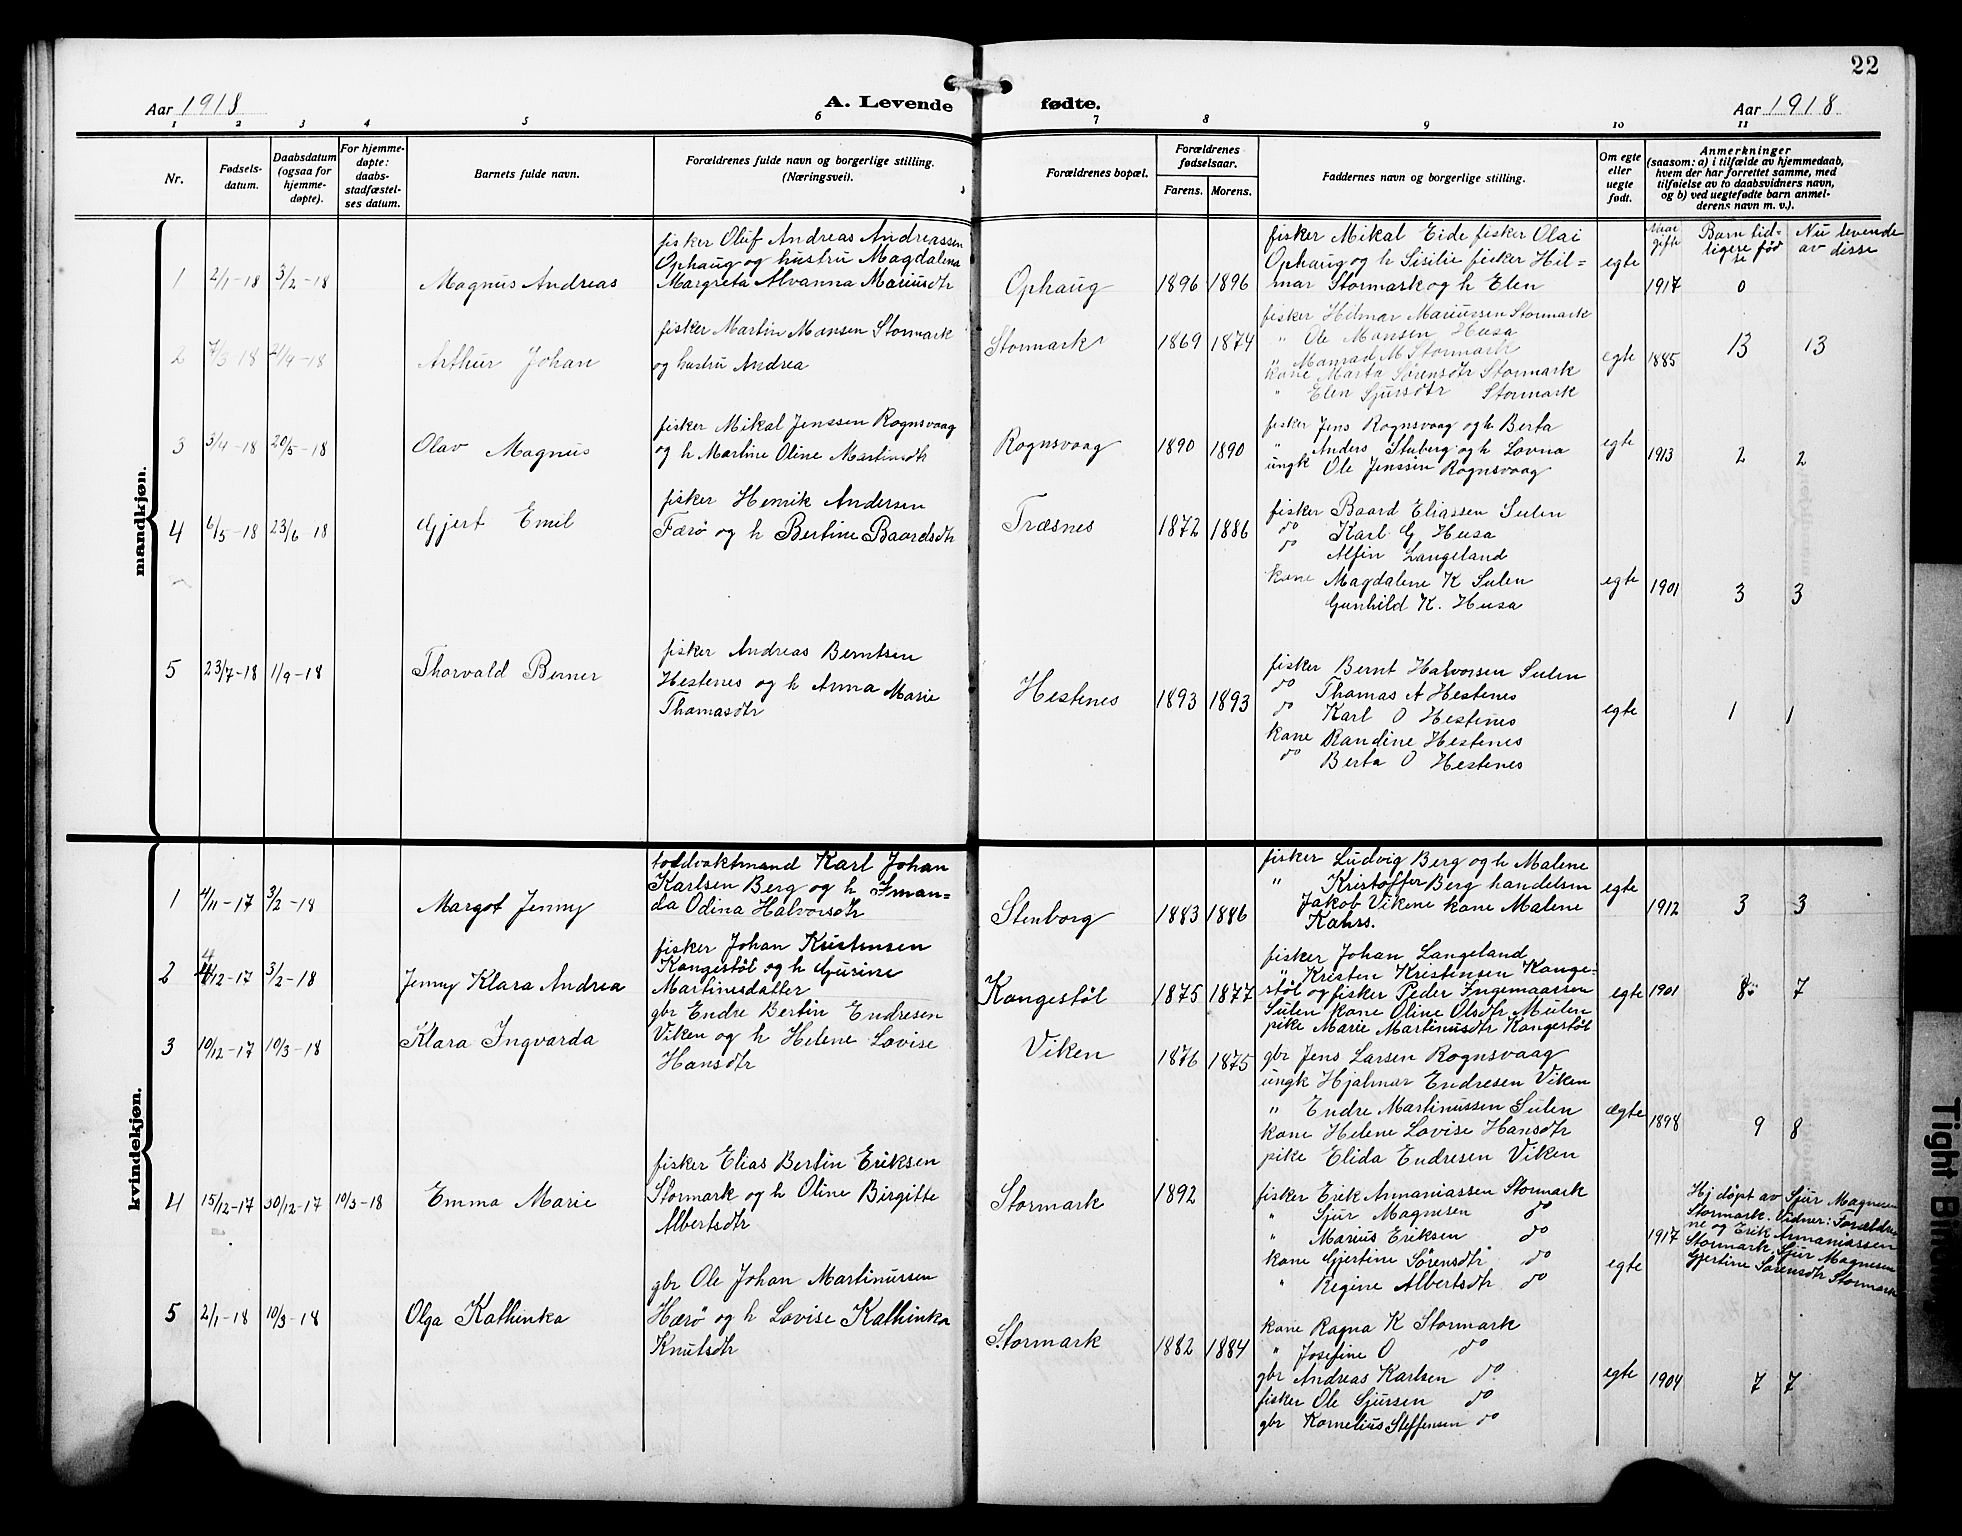 22
Aar 1918
A. Levende fødte.
Aar 1918
1 2 3 4 5 6 7 8 9 10 11
Nr.
Fødsels-
datum.
Daabsdatum
(ogsaa for
hjemme-
døpte).
For hjemme-
døpte:
daabs-
stadfæstel-
ses datum.
Barnets fulde navn.
Forældrenes fulde navn og borgerlige stilling.
(Næringsvei).
Forældrenes bopæl.
Forældrenes
fødselsaar.
Farens. Morens.
Faddernes navn og borgerlige stilling.
Om egte
eller
uegte
født.
Anmerkninger
(saasom: a) i tilfælde av hjemmedaab,
hvem der har forrettet samme, med
tilføielse av to daabsvidners navn,
og b) ved uegtefødte barn anmel-
derens navn m. v.).
gifte
Barn tid-
ligere fød
te
Nu levende
av disse
mandkjøn.
1 2/1-18 3/2-18
Magnus Andreas
fisker Oluf Andreas Andreassen
Ophaug og hustru Magdalena
Margreta Alvanna Mariusdtr
Ophaug 1896 1896
fisker Mikal Eide fisker Olai
Ophaug og h Sisilie fisker Hil=
mar Stormark og h Elen
egte 1917 0
2 7/3-18 21/4-18
Arthur Johan
fisker Martin Monsen Stormark
og hustru Andrea
Stormark 1869 1874
fisker Hilmar Mariussen Stormark
" Ole Monsen Husa
" Monrad M Stormark
kone Marta Sørensdtr Stormark
" Elen Sjursdtr Stormark
egte 1885 13 13
3 3/4-18 20/5-18
Olav Magnus
fisker Mikal Jenssen Rognsvaag
og h Martine Oline Martinsdtr
Rognsvaag 1890 1890
fisker Jens Rognsvaag og h Berta
" Anders Stuberg og h Lovna
ungk Ole Jenssen Rognsvaag
egte 1913 2 2
4 6/5-18 23/6-18
Gjert Emil
fisker Henrik Andersen
Færø og h Bertine Baardsdtr
Træsnes 1872 1886
fisker Baard Eliassen Sulen
do Karl G Husa
do Alfin Langeland
kone Magdalene K Sulen
Gunhild K. Husa
egte 1901 3 3
5 23/7-18 1/9-18
Thorvald Berner
fisker Andreas Berntsen
Hestenes og h Anna Marie
Thomasdtr
Hestenes 1893 1893
fisker Bernt Halvorsen Sulen
do Thomas A Hestenes
do Karl O Hestenes
kone Randine Hestenes
do Berta O Hestenes
egte 1 1
kvindekjøn.
1 4/11-17 3/2-18
Margot Jenny
toldvaktmand Karl Johan
Karlsen Berg og h Iman-
da Odina Halvorsdtr
Stenborg 1883 1886
fisker Ludvig Berg og h Malene
" Kristoffer Berg handelsm
Jakob Vikene kone Malene
Kahrs.
egte 1912 3 3
2 4/12-17 3/2-18
Jenny Klara Andrea
fisker Johan Kristensen
Kongestøl og h Gurine
Martinesdatter
Kongestøl 1875 1877
fisker Johan Langeland
" Kristen Kristensen Konge=
støl og fisker Peder Ingemaassen
Sulen kone Oline Olsdtr Mulen
pike Marie Martinusdtr Kongestøl
egte 1901 8 7
3 10/12-17 10/3-18
Klara Ingvarda
gbr Endre Bertin Endresen
Viken og h Helene Lovise
Hansdtr
Viken 1876 1875
gbr Jens Larsen Rognsvaag
ungk Hjalmar Endresen Viken
" Endre Martinussen Sulen
kone Helene Lovise Hansdtr
pike Elida Endresen Viken
ægte 1898 9 8
4 15/12-17 30/12-17 10/3-18
Emma Marie
fisker Elias Bertin Eriksen
Stormark og h Oline Birgitte
Albertsdtr
Stormark 1892
fisker Erik Annaniassen Stormark
" Sjur Magnesen do
" Marius Eriksen do
kone Gjertine Sørensdtr do
" Regine Albertsdtr do
egte 1917
Hj døpt av Sjur Magnesen
Stormark. Vidner: Forældre-
ne og Erik Annaniassen
Stormark, Sjur Magnesen
Gjertine Sørensdtr Stormark
5 2/1-18 10/3-18
Olga Kathinka
gbr Ole Johan Martinussen
Hærø og h Lovise Kathinka
Knutsdtr
Stormark 1882 1884
kone Ragna K Stormark
" Josefine O do
gbr Andreas Karlsen do
fisker Ole Sjursen do
gbr Kornelius Steffensen do
egte 1904 7 7
Tight Bin